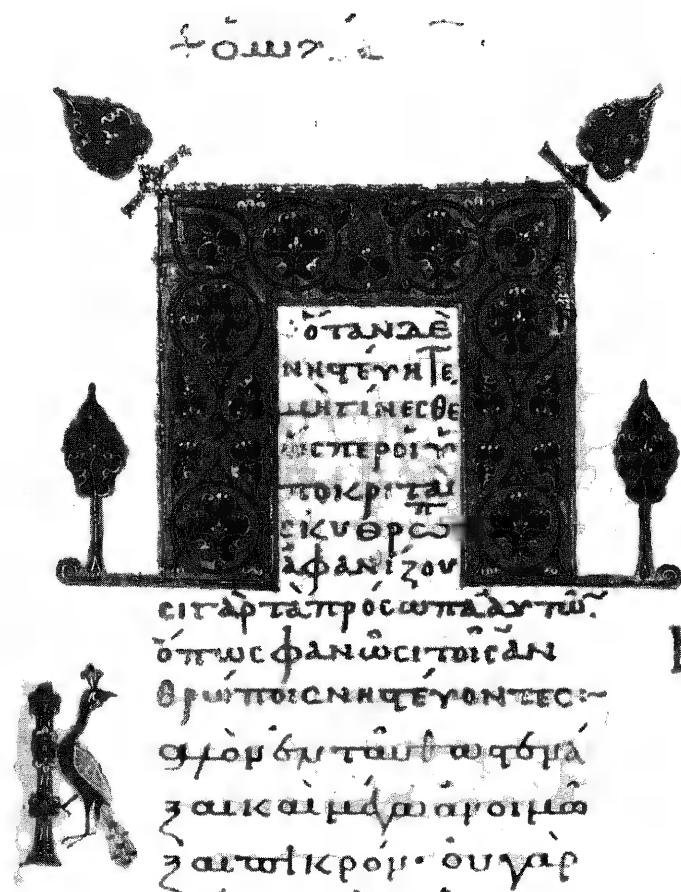 ὅταν δὲ
νηστεύητε
μὴ γίνεσθε
ὥσπερ οἱ ὑ
ποκριταὶ
σκυθρωπ
ἀφανίζου
σι γὰρ τὰ πρόσωπα αὐτῶ
ὅπως φανῶσι τοῖς ἀν
θρώποις νηστεύοντες:~
Καλὸν ἐνταῦθα στενά
ξαι καὶ μέγα ἀνοιμῶ
ξαι πικρόν· οὐ γὰρ